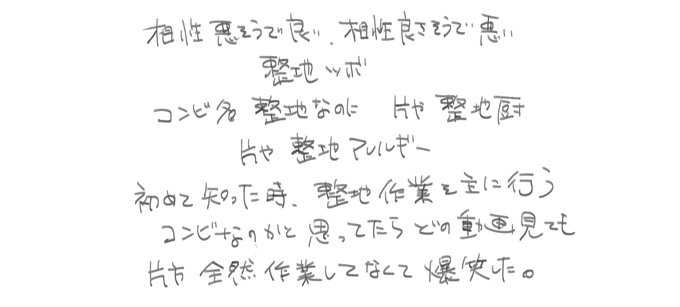 相性悪そうで良い、相性良さそうで悪い
整地ッボ
コンビ名 整地なのに 片や 整地厨
片や 整地アレルギー
初めて知った時、整地作業を主に行う
コンビなのかと思ってたら どの動画見ても
片方 全然作業してなくて爆笑した。